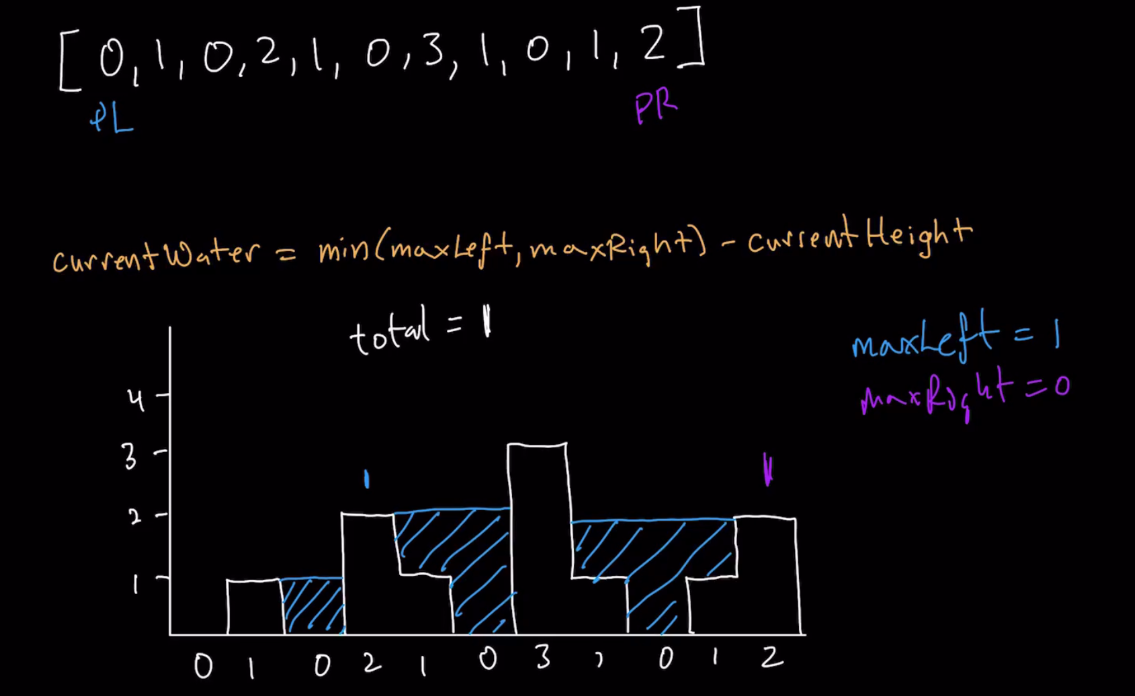 [0,1,0,2,1,0,3,1,0,1,2]
PL PR
currentWater = min(maxLeft, maxRight) - currentHeight
total = 1
maxLeft = 1
maxRight = 0
4
3
2
1
0 1 0 2 1 0 3 0 1 2